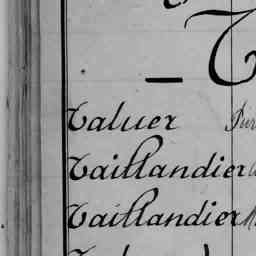 T
Taluer
Taillandier
Taillandier